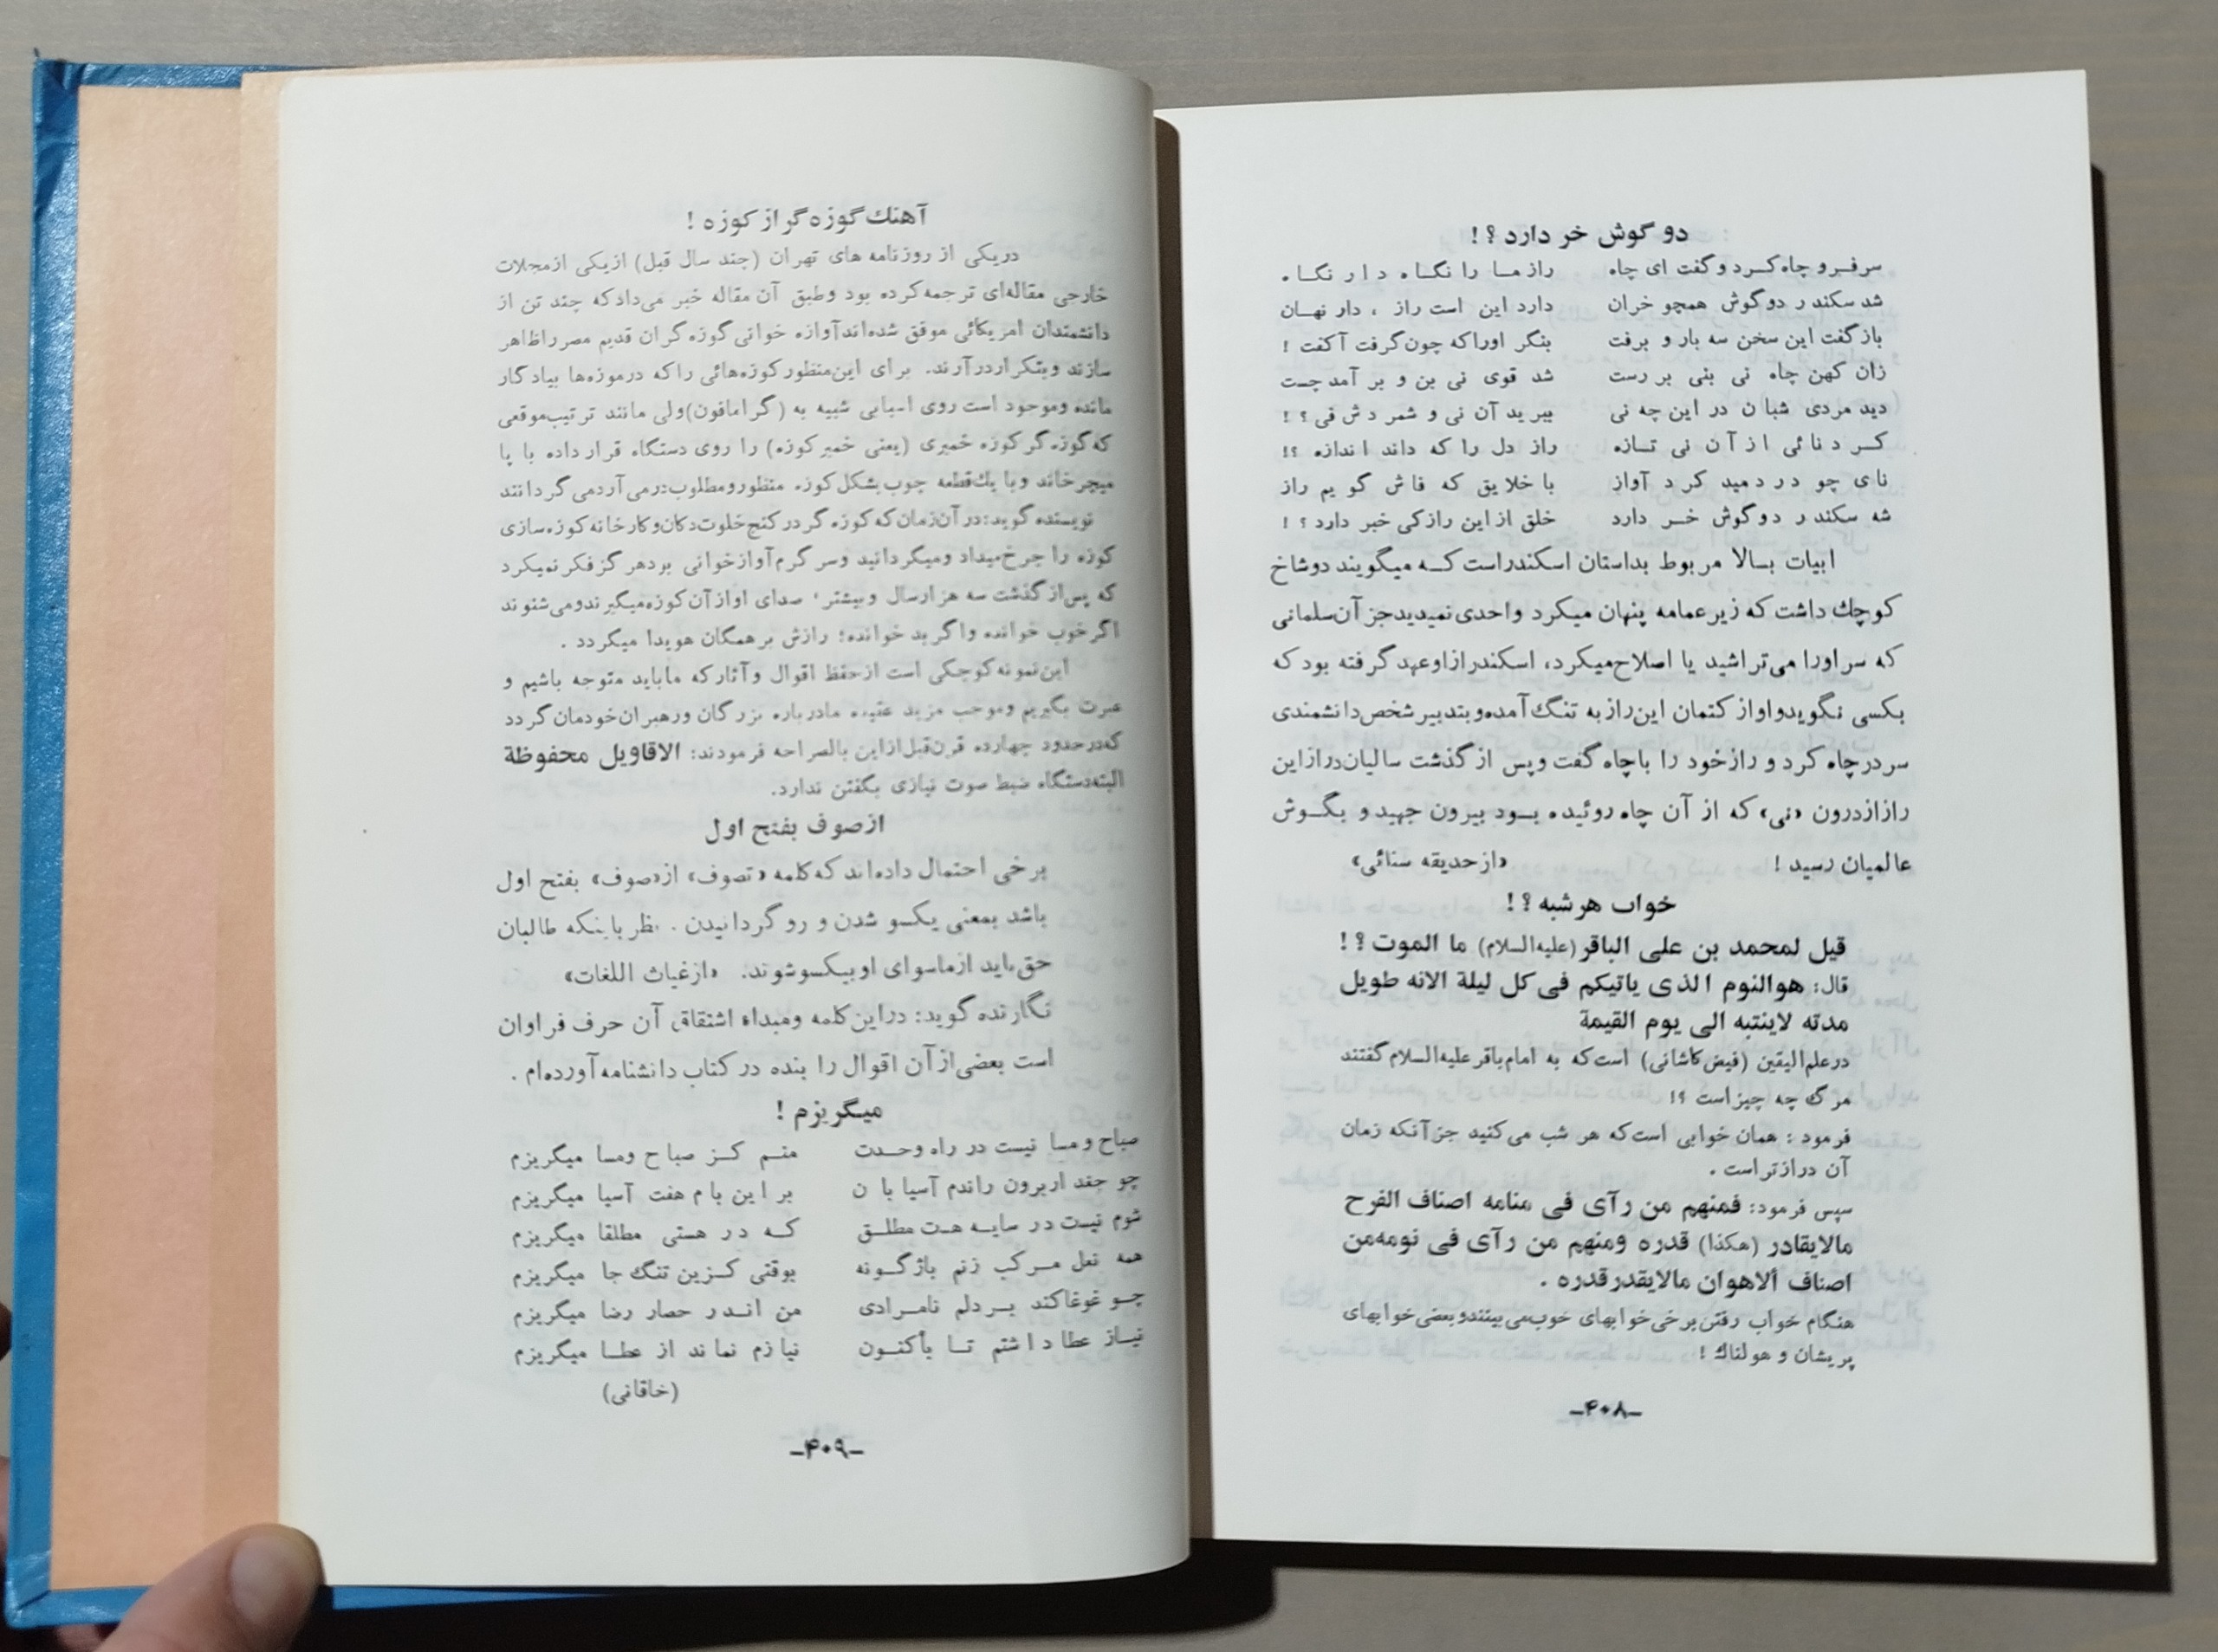 دو گوش خر دارد؟!
سر فرو چاه کرد و گفت ای چاه راز ما را نگاه دار نگاه.
شد سکندر دو گوش همچو خران دارد این است راز، دار نهان
باز گفت این سخن سه بار و برفت بنگر اورا که چون گرفت آکفت!
زان کهن چاه نی بنی بر رست شد قوی نی بن و بر آمد چست
دید مردی شبان در این چه نی ببرید آن نی و شمردش فی؟!
کرد نائی از آن نی تازه راز دل را که داند اندازه؟!
نای چو در دمید کرد آواز با خلایق که فاش گویم راز
شه سکندر دو گوش خر دارد خلق از این راز کی خبر دارد؟!
ابیات بالا مربوط بداستان اسکندر است که میگویند دو شاخ
کوچك داشت که زیر عمامه پنهان میکرد واحدی نمیدید جز آن سلمانی
که سر اورا می تراشید یا اصلاح میکرد، اسکندر از او عهد گرفته بود که
بکسی نگوید و او از کتمان این راز به تنگ آمده و بتدبیر شخص دانشمندی
سر در چاه کرد و راز خود را با چاه گفت و پس از گذشت سالیان دراز این
راز از درون «نی» که از آن چاه روئیده بود بیرون جهید و بگوش
عالمیان رسید! «از حدیقه سنائی»
خواب هر شبه؟!
قیل لمحمد بن علی الباقر (علیه السلام) ما الموت؟!
قال: هو النوم الذی یاتیکم فی کل لیلة الانه طویل
مدته لاینتبه الی یوم القیمة
در علم الیقین (فیض کاشانی) است که به امام باقر علیه السلام گفتند
مرگ چه چیز است؟!
فرمود: همان خوابی است که هر شب می کنید جز آنکه زمان
آن درازتر است.
سپس فرمود: فمنهم من رآی فی منامه اصناف الفرح
مالایقادر (هکذا) قدره ومنهم من رآی فی نومه من
اصناف ألاهوان مالایقدر قدره.
هنگام خواب رفتن برخی خوابهای خوب می بینند و بعضی خوابهای
پریشان و هولناك!
-۴۰۸-
آهنك گوزه گر از کوزه!
در یکی از روزنامه های تهران (چند سال قبل) از یکی از مجلات
خارجی مقاله ای ترجمه کرده بود و طبق آن مقاله خبر می داد که چند تن از
دانشمندان امریکائی موفق شده اند آوازه خوانی گوزه گران قدیم مصر را ظاهر
سازند و بتکرار در آرند. برای این منظور کوزه هائی را که در موزه ها بیادگار
مانده و موجود است روی اسبابی شبیه به (گرامافون) ولی مانند ترتیب موقعی
که گوزه گر کوزه خمیری (یعنی خمیر کوزه) را روی دستگاه قرار داده با پا
میچرخاند و با یك قطعه چوب بشکل کوزه منظور و مطلوب در می آرد می گردانند
نویسنده گوید: در آن زمان که کوزه گر در کنج خلوت دکان و کارخانه کوزه سازی
کوزه را چرخ میداد و میگردانید و سر گرم آواز خوانی بود هرگز فکر نمیکرد
که پس از گذشت سه هزار سال و بیشتر، صدای او از آن کوزه میگیرند و می شنوند
اگر خوب خوانده و اگر بد خوانده؛ رازش بر همگان هویدا میگردد.
این نمونه کوچکی است از حفظ اقوال و آثار که ما باید متوجه باشیم و
عبرت بگیریم و موجب مزید عقیده ما درباره بزرگان و رهبران خودمان گردد
که در حدود چهارده قرن قبل از این بالصراحه فرمودند: الاقاویل محفوظة
البته دستگاه ضبط صوت نیازی بگفتن ندارد.
از صوف بفتح اول
برخی احتمال داده اند که کلمه «تصوف» از «صوف» بفتح اول
باشد بمعنی یکسو شدن و رو گردانیدن. نظر باینکه طالبان
حق باید از ماسوای او بیکسو شوند. «از غیاث اللغات»
نگارنده گوید: در این کلمه و مبداء اشتقاق آن حرف فراوان
است بعضی از آن اقوال را بنده در کتاب دانشنامه آورده ام.
میگریزم!
صباح و مسا نیست در راه وحدت منم کز صباح و مسا میگریزم
چو جغد ار برون راندم آسیابان بر این بام هفت آسیا میگریزم
شوم نیست در سایه هست مطلق که در هستی مطلقا میگریزم
همه نعل مرکب زنم باژگونه بوقتی کزین تنگ جا میگریزم
چو غوغا کند بر دلم نامرادی من اندر حصار رضا میگریزم
نیاز عطا داشتم تا بأکنون نیازم نماند از عطا میگریزم
(خاقانی)
-۴۰۹-